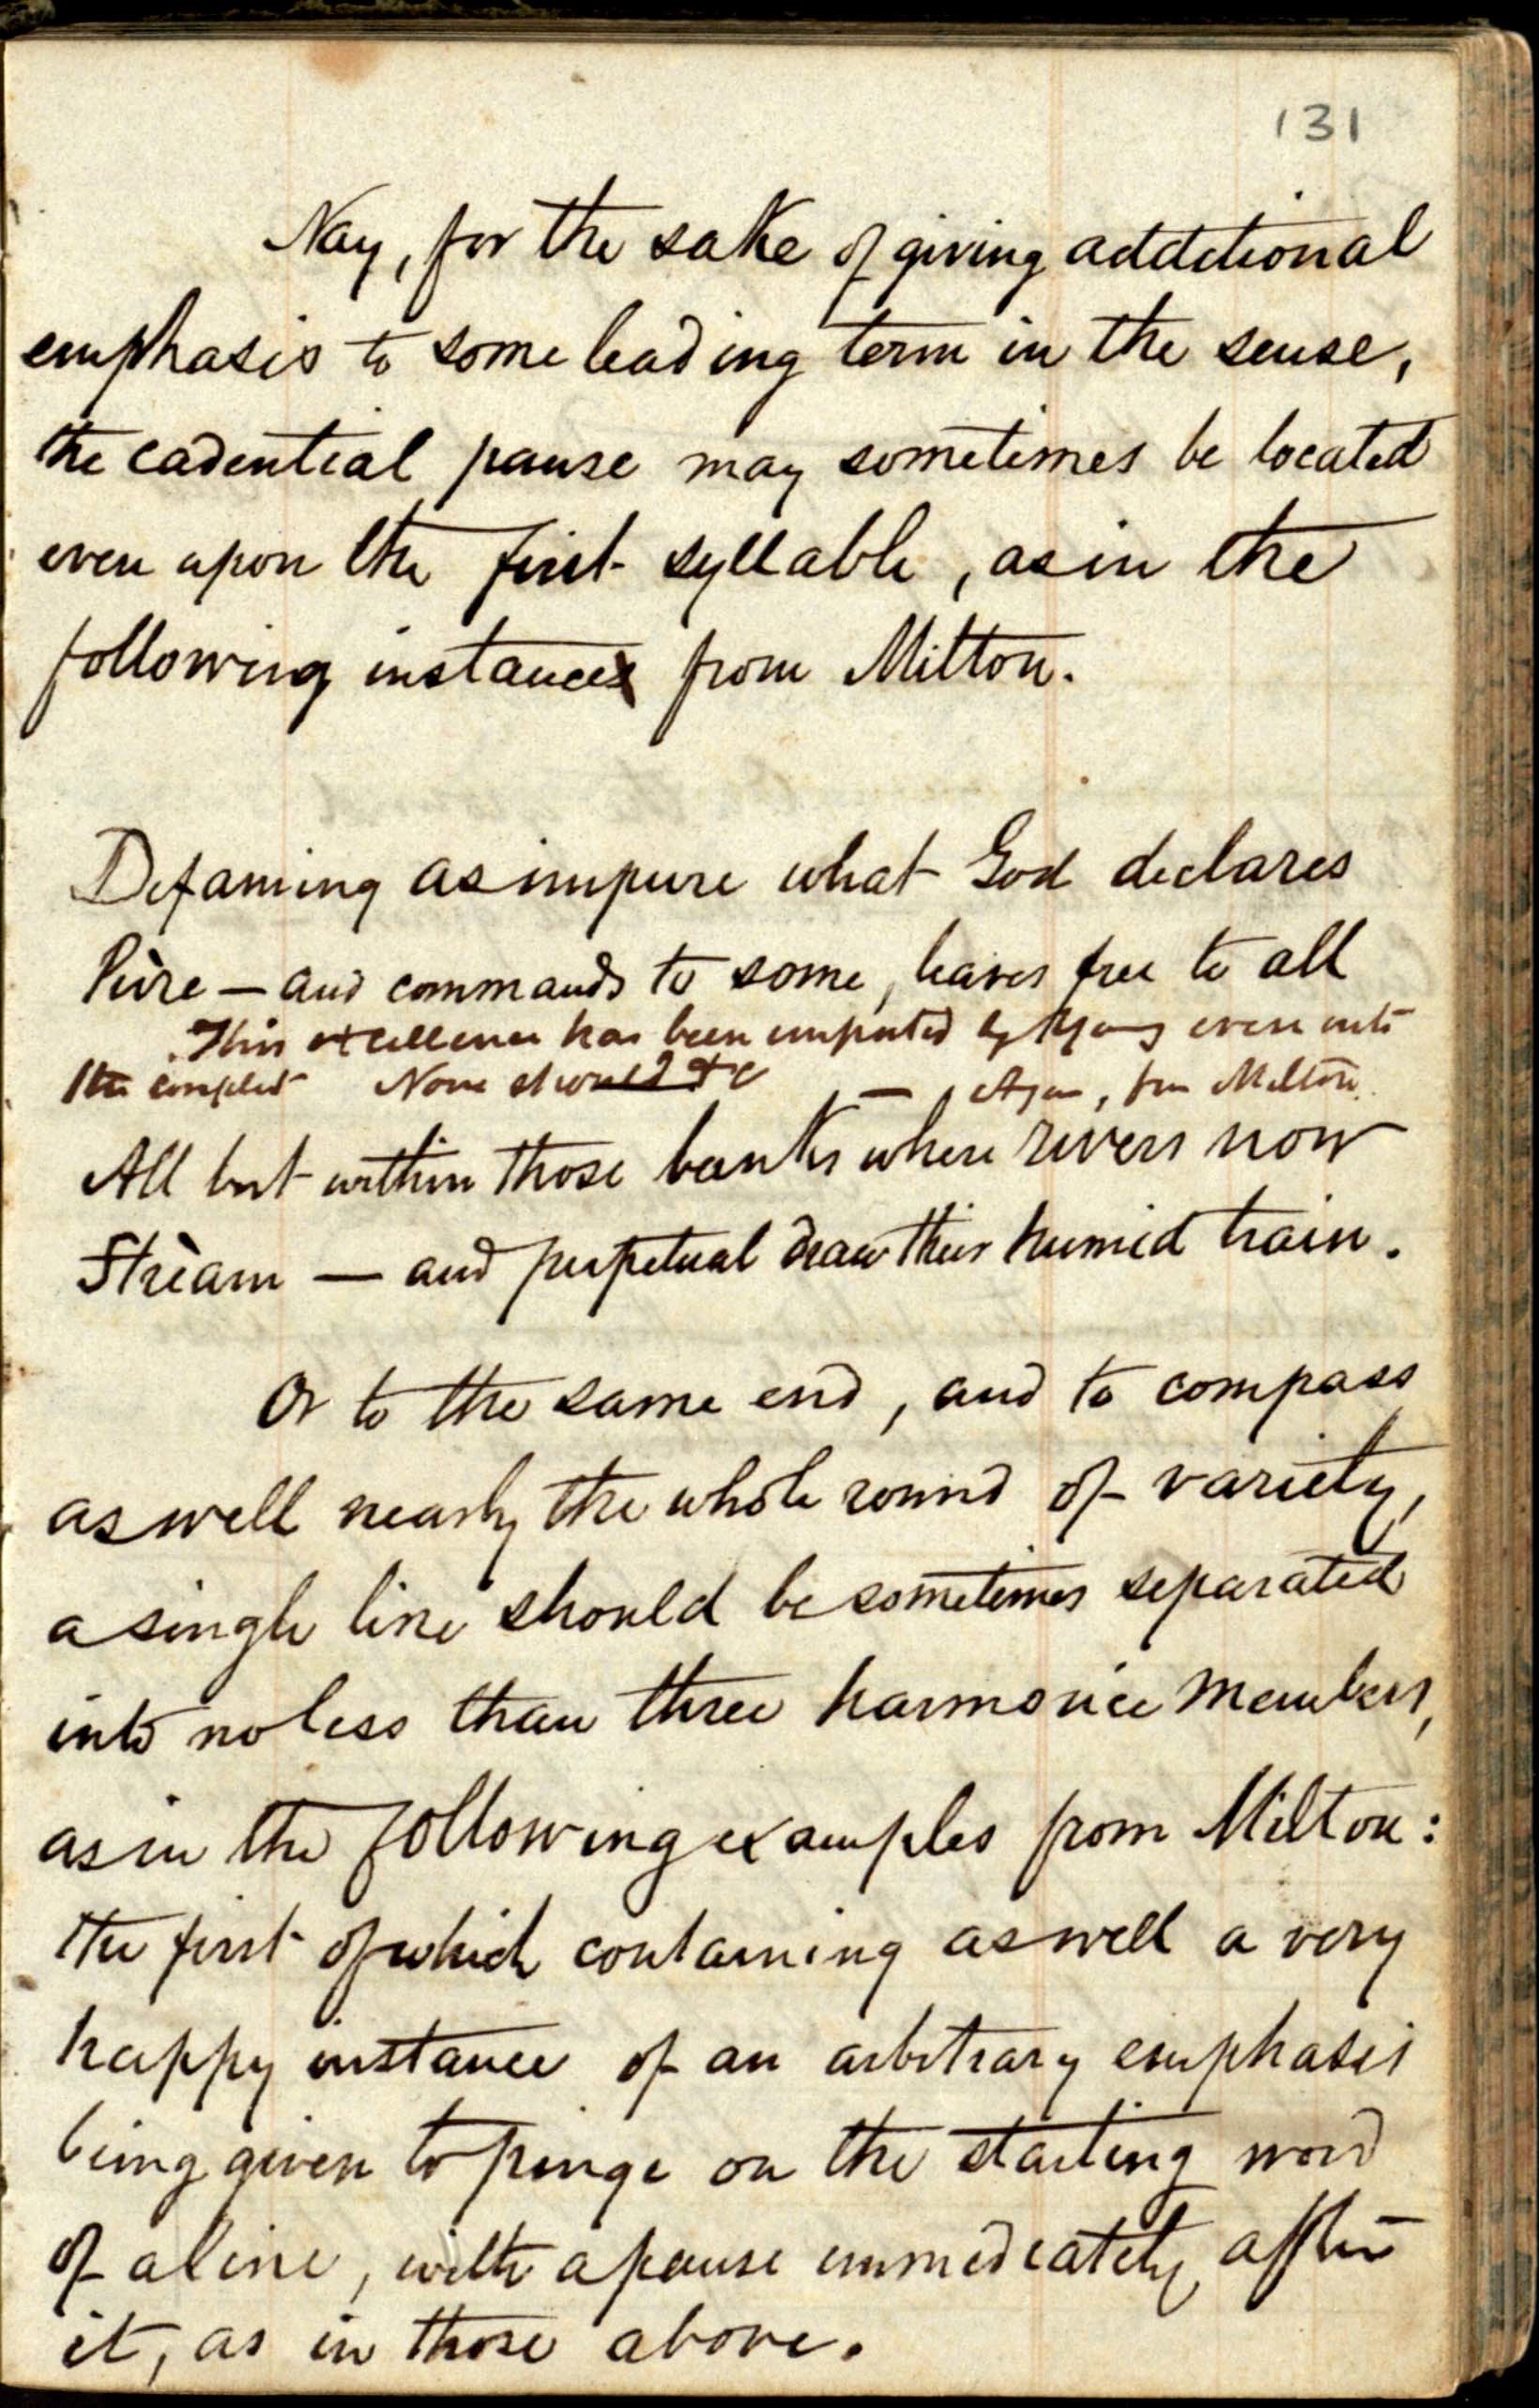 131
Nay, for the sake of giving additional
emphasis to some leading term in the sense,
the cadential pause may sometimes be located
even upon the first syllable, as in the
following instance from Milton.
Defaming as impure what God declares
Pùre — and commands to some, leaves free to all
This excellence has been imputed by even into
the couplet None should &c — Again, from Milton.
All but within those banks where rivers now
Strèam — and perpetual draw their humid train.
Or to the same end, and to compass
as well nearly the whole round of variety,
a single line should be sometimes separated
into no less than three harmonic members,
as in the following examples from Milton:
the first of which containing as well a very
happy instance of an arbitrary emphasis
being given to hinge on the starting word
of a line, with a pause immediately after
it, as in those above.